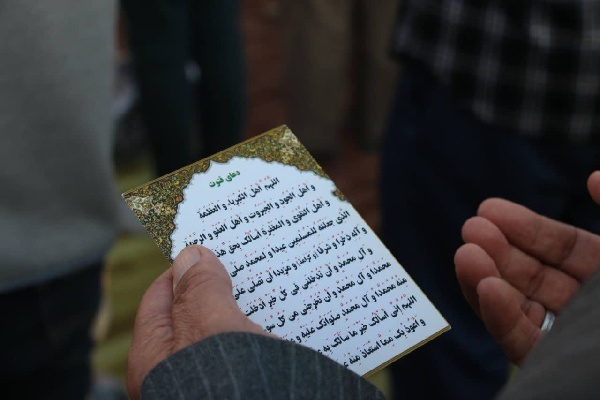 دعای قنوت
اللهم أهل الکبریاء و العظمة
و أهل الجود و الجبروت و أهل العفو و الرحمة
و أهل التقوی و المغفرة أسألک بحق
الذی جعلته للمسلمین عیدا و لمحمد صلی
و آله ذخرا و شرفا و مزیدا أن تصلی علی
و آل محمد و أن تدخلنی فی کل خیر أدخلت
محمدا و آل محمد و أن تخرجنی من کل سوء
منه محمدا و آل محمد صلواتک علیه و
اللهم إنی أسألک خیر ما سألک به
و أعوذ بک مما استعاذ منه